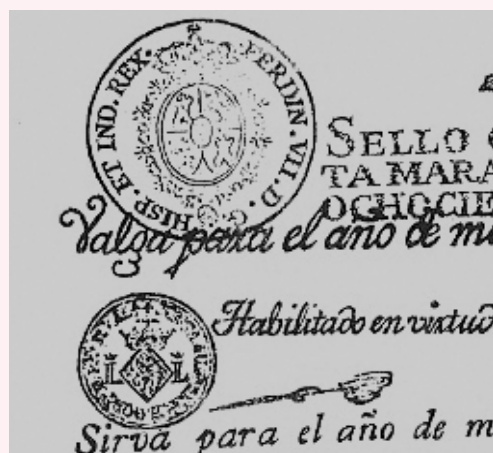 FERDIN. VII. D. G. HISP. ET IND. REX.
SELLO
TA MARA
OCHOCIE
Valga para el año de m
Habilitado en virtud
Sirva para el año de m